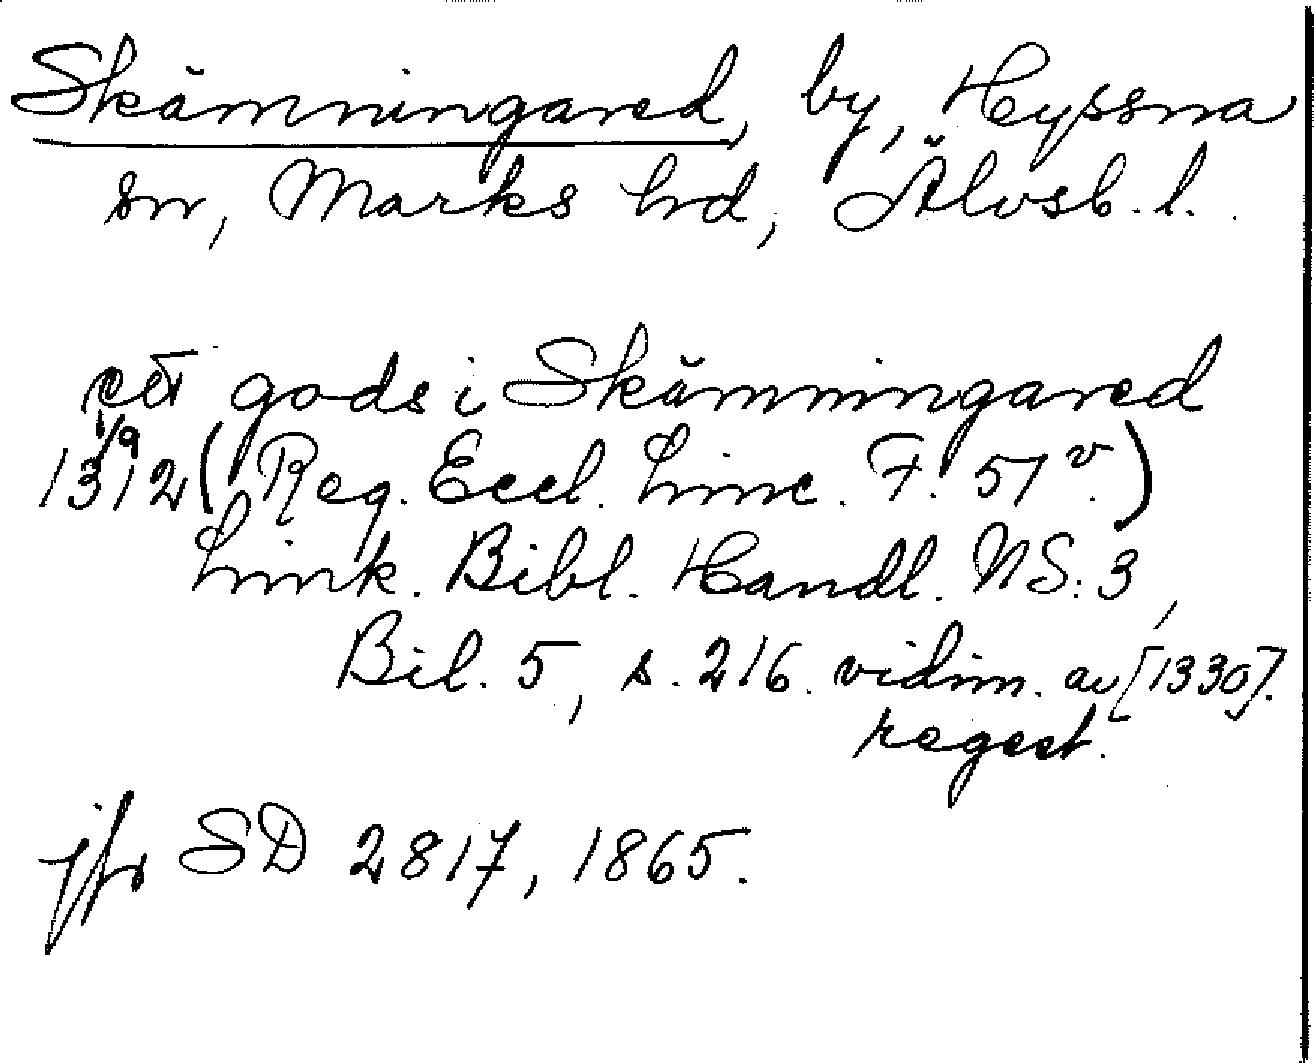 Skämningared, by, Hyssna
sn, Marks hd, Älvsb. l.
ett gods i Skämningared
1/9
1312 (Reg. Eccl. Linc. F. 51 v.)
Link. Bibl. Handl. NS: 3,
Bil. 5, s. 216. vidim. av [1330].
regest.
jfr SD 2817, 1865.